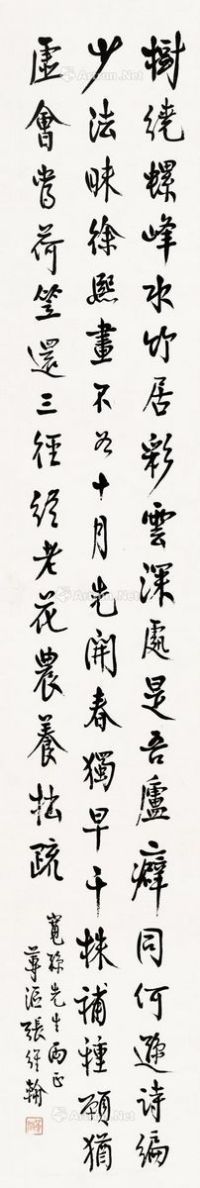 樹繞螺峰水竹居彩雲深處是吾廬癖同何遜詩編
少法昧徐熙畫不如十月先開春獨早千株補種願猶
虛會當荷笠還三徑終老花農養拙疏
寬孫先生兩正
蓴漚張經翰